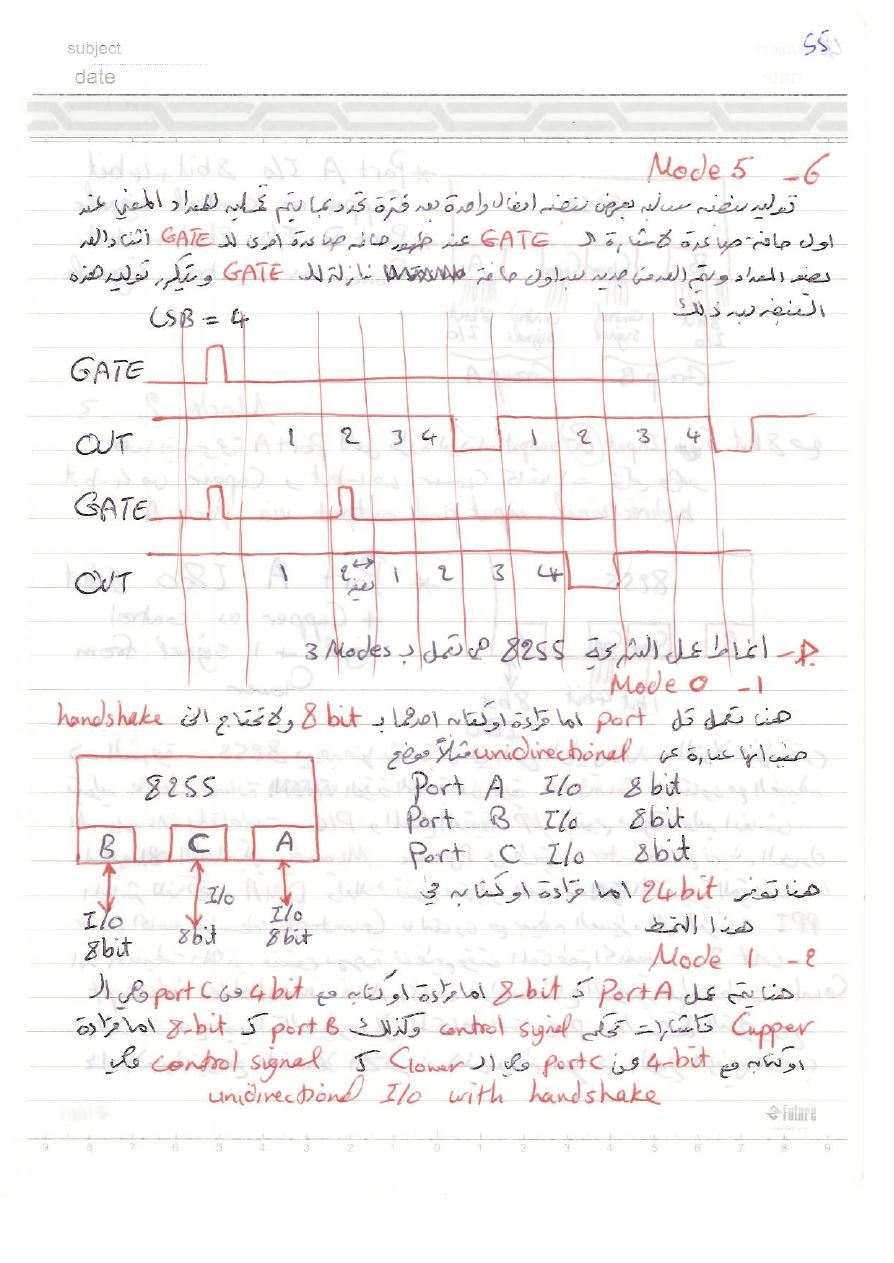 subject
date
55
6- Mode 5
توليد نبضه سالبه بعرض نبضه ادخال واحدة بعد فترة تحدد بما يتم تحميله للعداد المعني عند
اول حافة صاعدة لاشارة الـ GATE عند ظهور حافه صاعدة اخرى للـ GATE اثناء العد
يصفر العداد ويتم العد من جديد عند اول حافة نازلة للـ GATE ويتكرر توليد هذه
النبضه بعد ذلك
LSB = 4
GATE
OUT 1 2 3 4 1 2 3 4
GATE
OUT 1 2 1 2 3 4
انماط عمل الشريحة 8255 هي تعمل بـ 3 Modes
1- Mode 0
هنا تعمل كل port اما قراءة او كتابه احدهما بـ 8 bit ولا تحتاج الى handshake
حيث انها عبارة عن unidirectional مثلاً موضح
8255
B C A
I/o 8bit
I/o 8bit
I/o 8bit
Port A I/o 8bit
Port B I/o 8bit
Port C I/o 8bit
هنا توفر 24bit اما قراءة او كتابه في
هذا النمط
2- Mode 1
هنا يتم عمل Port A كـ 8-bit اما قراءة او كتابه مع 4 bit من port C وهي الـ
Cupper كاشارات تحكم control signal وكذلك port B كـ 8-bit اما قراءة
او كتابه مع 4-bit من port C وهي الـ Clower كـ control signal وهي
unidirectional I/o with handshake
Future
9 8 7 6 5 4 3 2 1 0 1 2 3 4 5 6 7 8 9